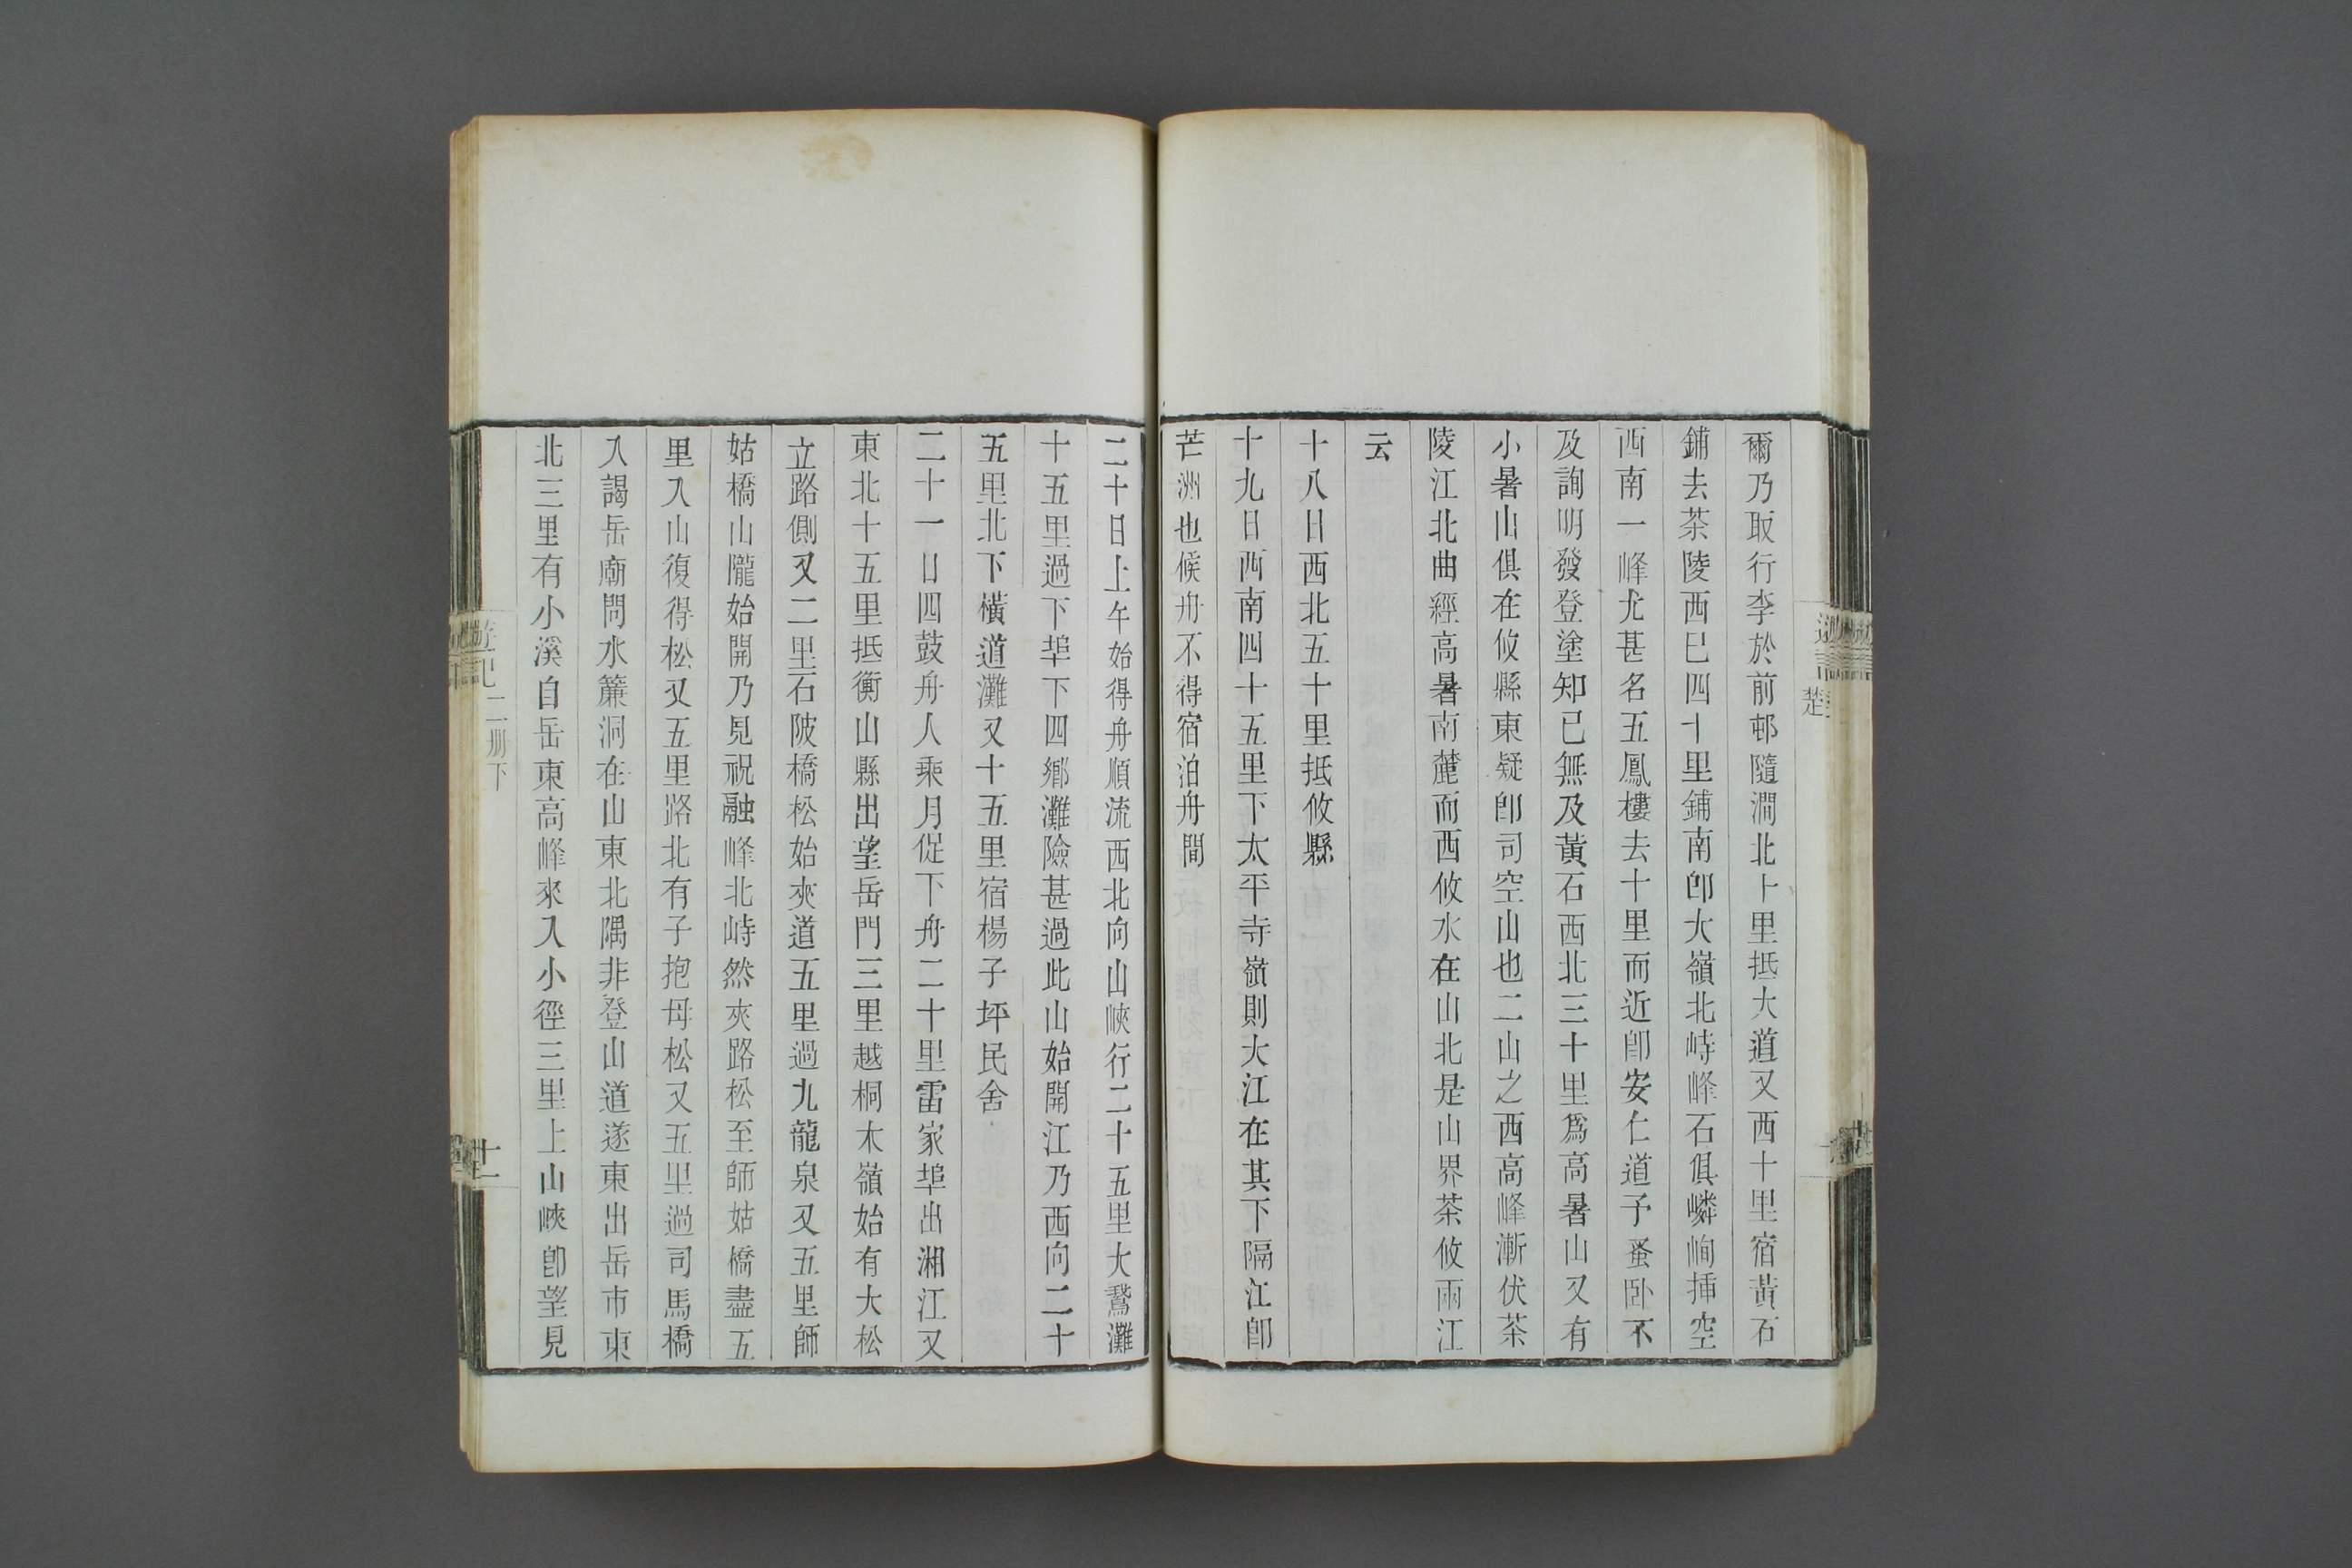 爾乃取行李於前邨隨澗北十里抵大道又西十里宿黃石
鋪去茶陵西已四十里鋪南卽大嶺北峙峰石俱嶙峋揷空
西南一峰尤甚名五鳳樓去十里而近卽安仁道予蚤臥不
及詢明發登塗知已無及黃石西北三十里爲高暑山又有
小暑山俱在攸縣東疑卽司空山也二山之西高峰漸伏茶
陵江北曲經高暑南麓而西攸水在山北是山界茶攸兩江
云
十八日西北五十里抵攸縣
十九日西南四十五里下太平寺嶺則大江在其下隔江卽
芒洲也候舟不得宿泊舟間
二十日上午始得舟順流西北向山峽行二十五里大鵞灘
十五里過下埠下四鄉灘險甚過此山始開江乃西向二十
五里北下橫道灘又十五里宿楊子坪民舍
二十一日四鼓舟人乘月促下舟二十里雷家埠出湘江又
東北十五里抵衡山縣出望岳門三里越桐木嶺始有大松
立路側又二里石陂橋松始夾道五里過九龍泉又五里師
姑橋山隴始開乃見祝融峰北峙然夾路松至師姑橋盡五
里入山復得松又五里路北有子抱母松又五里過司馬橋
入謁岳廟問水簾洞在山東北隅非登山道遂東出岳市東
北三里有小溪自岳東高峰來入小徑三里上山峽卽望見
遊記二册下